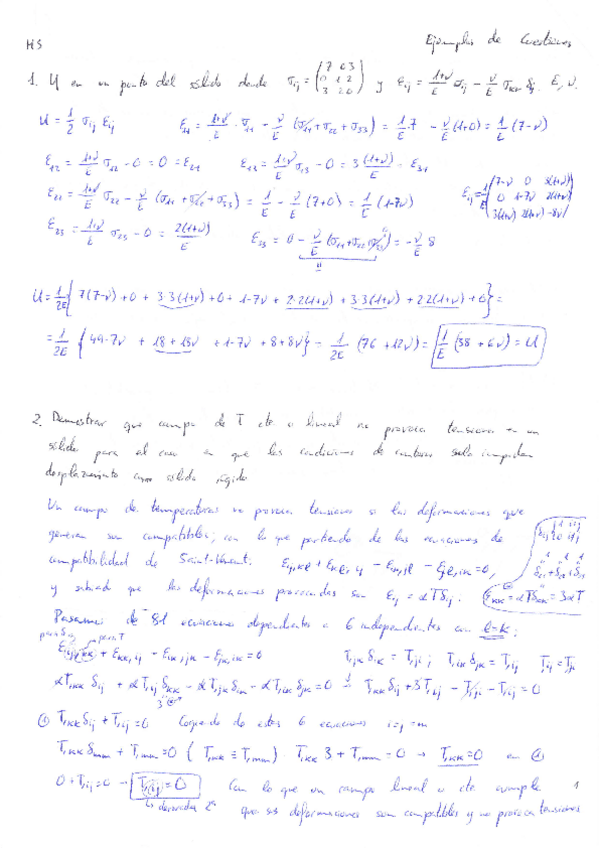 H5
Ejemplos de Cuestiones
1. U en un punto del sólido donde σij = (7 0 3; 0 1 2; 3 2 0) y εij = (1+ν)/E σij - ν/E σkk δij. E, ν.
U = 1/2 σij εij    ε11 = (1+ν)/E · σ11 - ν/E (σ11 + σ22 + σ33) = 1/E · 7 - ν/E (1+0) = 1/E (7-ν)
ε12 = (1+ν)/E σ12 - 0 = 0 = ε21    ε13 = (1+ν)/E σ13 - 0 = 3 (1+ν)/E = ε31
ε22 = (1+ν)/E σ22 - ν/E (σ11 + σ22 + σ33) = 1/E - ν/E (7+0) = 1/E (1-7ν)    εij = 1/E (7-ν 0 3(1+ν); 0 1-7ν 2(1+ν); 3(1+ν) 2(1+ν) -8ν)
ε23 = (1+ν)/E σ23 - 0 = 2(1+ν)/E    ε33 = 0 - ν/E (σ11 + σ22 + σ33) = -ν/E 8
U = 1/2E { 7(7-ν) + 0 + 3·3(1+ν) + 0 + 1-7ν + 2·2(1+ν) + 3·3(1+ν) + 2·2(1+ν) + 0 } =
= 1/2E { 49-7ν + 18+18ν + 1-7ν + 8+8ν } = 1/2E (76 + 12ν) = 1/E (38 + 6ν) = U
2. Demostrar que campo de T cte o lineal no provoca tensiones en un
sólido para el caso en que las condiciones de contorno solo impidan
desplazamiento como sólido rígido
Un campo de temperaturas no provoca tensiones si las deformaciones que
generan son compatibles; con lo que partiendo de las ecuaciones de
compatibilidad de Saint-Venant: εij,kl + εkl,ij - εik,jl - εjl,ik = 0,
y sabiendo que las deformaciones provocadas son εij = αTδij. εkk = αTδkk = 3αT
Pasamos de 81 ecuaciones dependientes a 6 independientes con l=k:
εij,kk + εkk,ij - εik,jk - εjk,ik = 0    T,jk δik = T,ji ; T,ik δjk = T,ij    T,ij = T,ji
αT,kk δij + αT,ij δkk - αT,jk δik - αT,ik δjk = 0 → T,kk δij + 3T,ij - T,ji - T,ij = 0
① T,kk δij + T,ij = 0    Cogiendo de estas 6 ecuaciones i=j=m
T,kk δmm + T,mm = 0 (T,kk ≡ T,mm) T,kk 3 + T,mm = 0 → T,kk = 0 en ①
0 + T,ij = 0 → T,ij = 0    Con lo que un campo lineal o cte cumple 1
↳ derivadas 2ª    que sus deformaciones son compatibles y no provoca tensiones